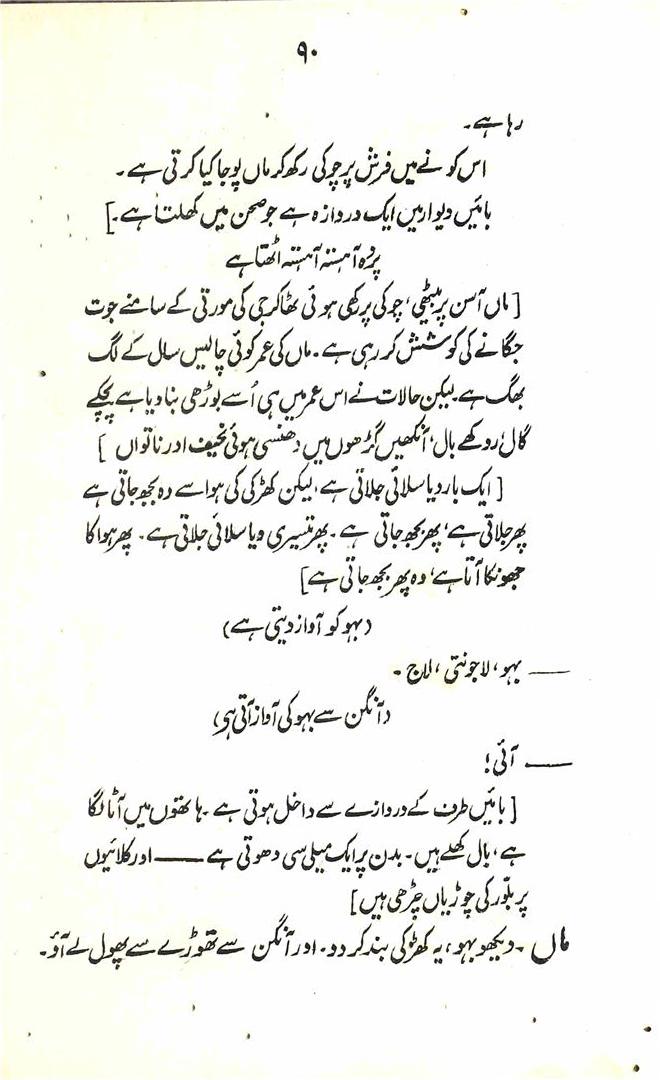 ۹۰
رہا ہے۔
اس کونے میں فرش پر چوکی رکھ کر ماں پوجا کیا کرتی ہے۔
بائیں دیوار میں ایک دروازہ ہے جو صحن میں کھلتا ہے۔]
پردہ آہستہ آہستہ اٹھتا ہے
[ماں آسن پر بیٹھی، چوکی پر رکھی ہوئی ٹھاکر جی کی مورتی کے سامنے جوت
جگانے کی کوشش کر رہی ہے۔ ماں کی عمر کوئی چالیس سال کے لگ
بھگ ہے۔ لیکن حالات نے اس عمر میں ہی اُسے بوڑھی بنا دیا ہے پچکے
گال، روکھے بال، آنکھیں گڑھوں میں دھنسی ہوئی نحیف اور ناتواں]
[ایک بار دیا سلائی جلاتی ہے، لیکن کھڑکی کی ہوا سے وہ بجھ جاتی ہے
پھر جلاتی ہے، پھر بجھ جاتی ہے۔ پھر تیسری دیا سلائی جلاتی ہے۔ پھر ہوا کا
جھونکا آتا ہے، وہ پھر بجھ جاتی ہے]
(بہو کو آواز دیتی ہے)
—— بہو، لاجونتی، لاج۔
(آنگن سے بہو کی آواز آتی ہی)
—— آئی!
[بائیں طرف کے دروازے سے داخل ہوتی ہے۔ ہاتھوں میں آٹا لگا
ہے، بال کھلے ہیں۔ بدن پر ایک میلی سی دھوتی ہے —— اور کلائیوں
پر بلّور کی چوڑیاں چڑھی ہیں]
ماں۔ دیکھو بہو، یہ کھڑکی بند کر دو۔ اور آنگن سے تھوڑے سے پھول لے آؤ۔